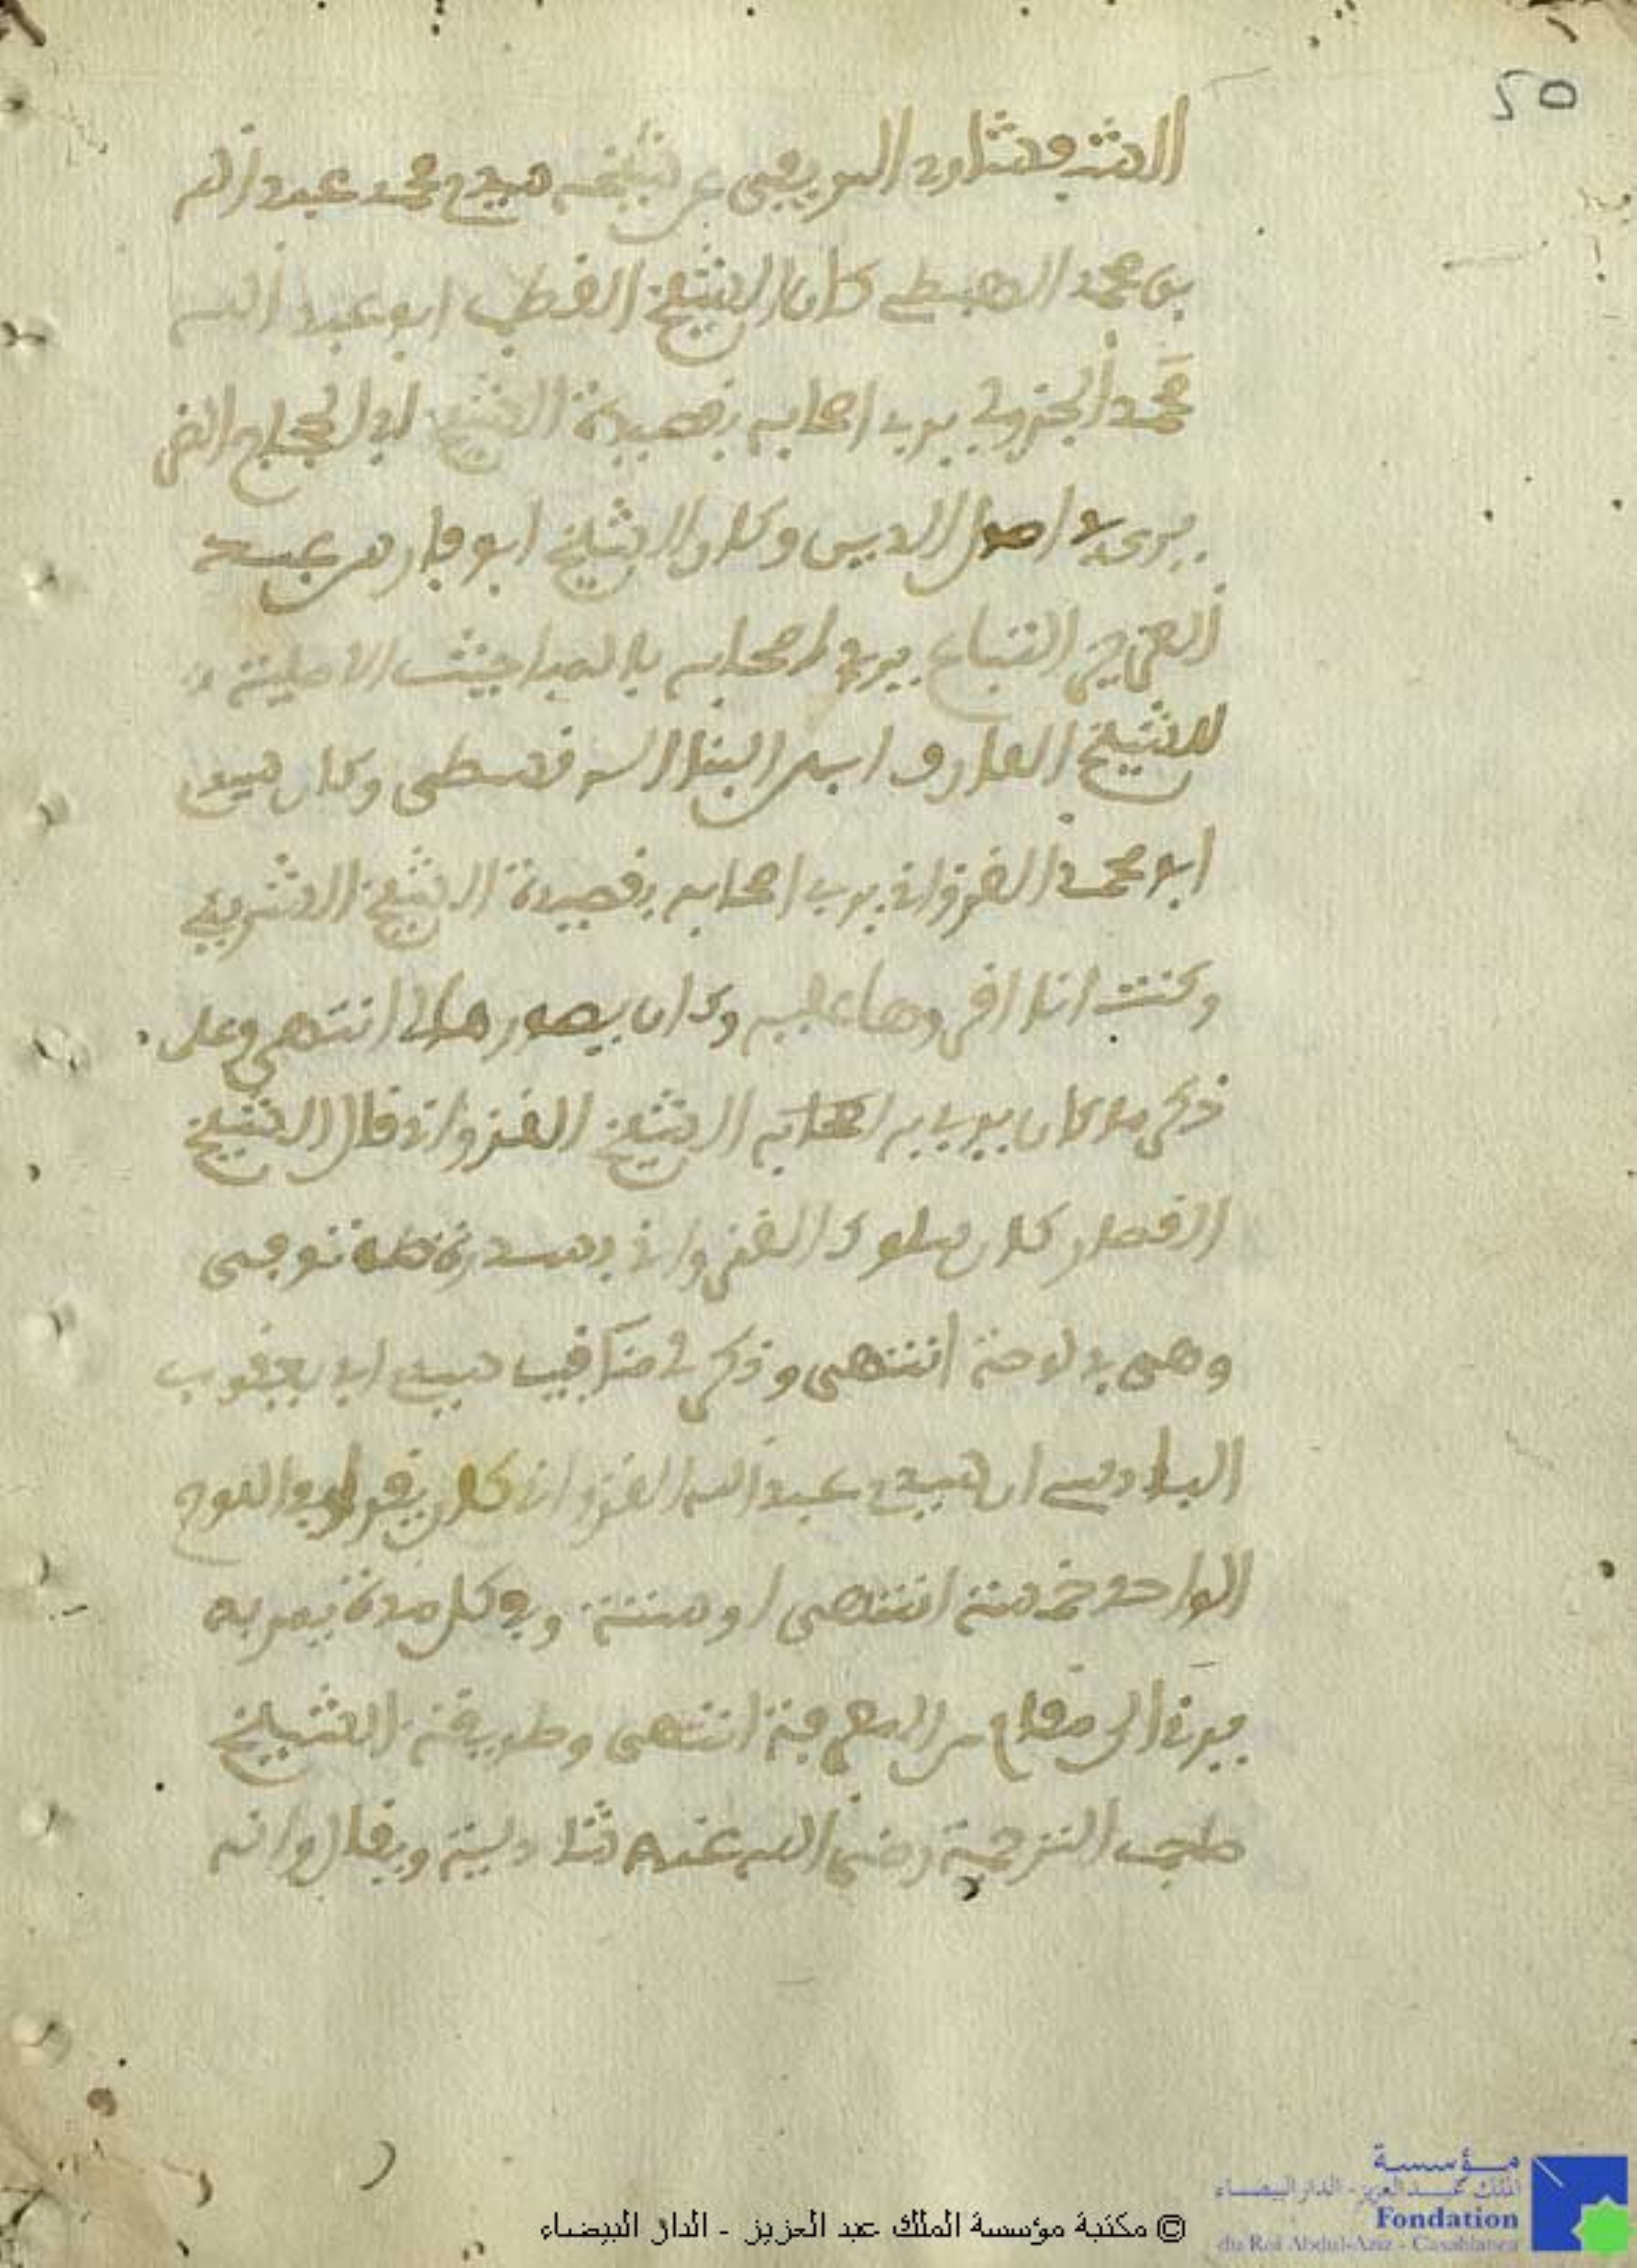 50
عن شيخه سيدي محمد عبد الله
بن محمد الهبطي كان الشيخ القطب ابو عبد الله
محمد الجزولي يربي اصحابه بقصيدة الشيخ ابي الحجاج الضرير
في اصول الدين وكان الشيخ ابو فارس عبد
العزيز التباع يربي اصحابه بالمباحث الاصلية
للشيخ العارف ابن البنا السرقسطي وكان سيدي
ابو محمد الغزواني يربي اصحابه بقصيدة الشيخ الشريشي
وكنت انا اقرءوها عليه وكان يصورها لي انتهى وعلى
ذكر ما كان يربي به اصحابه الشيخ الغزواني قال الشيخ
القصار كان سلوك الغزواني
وهي انتهى وذكر في مناقب سيدي ابي يعقوب
البادسي ان سيدي عبد الله الغزواني كان يقول في اللوح
الواحد خمسة انتهى او ستة وفي كل مدة يمر به
يرقى الى مقام من المعرفة انتهى وطريقة الشيخ
صاحب الترجمة رضي الله عنه شاذلية ويقال وانه
© مكتبة مؤسسة الملك عبد العزيز - الدار البيضاء
مؤسسة
الملك عبد العزيز - الدار البيضاء
Fondation
du Roi Abdul-Aziz - Casablanca